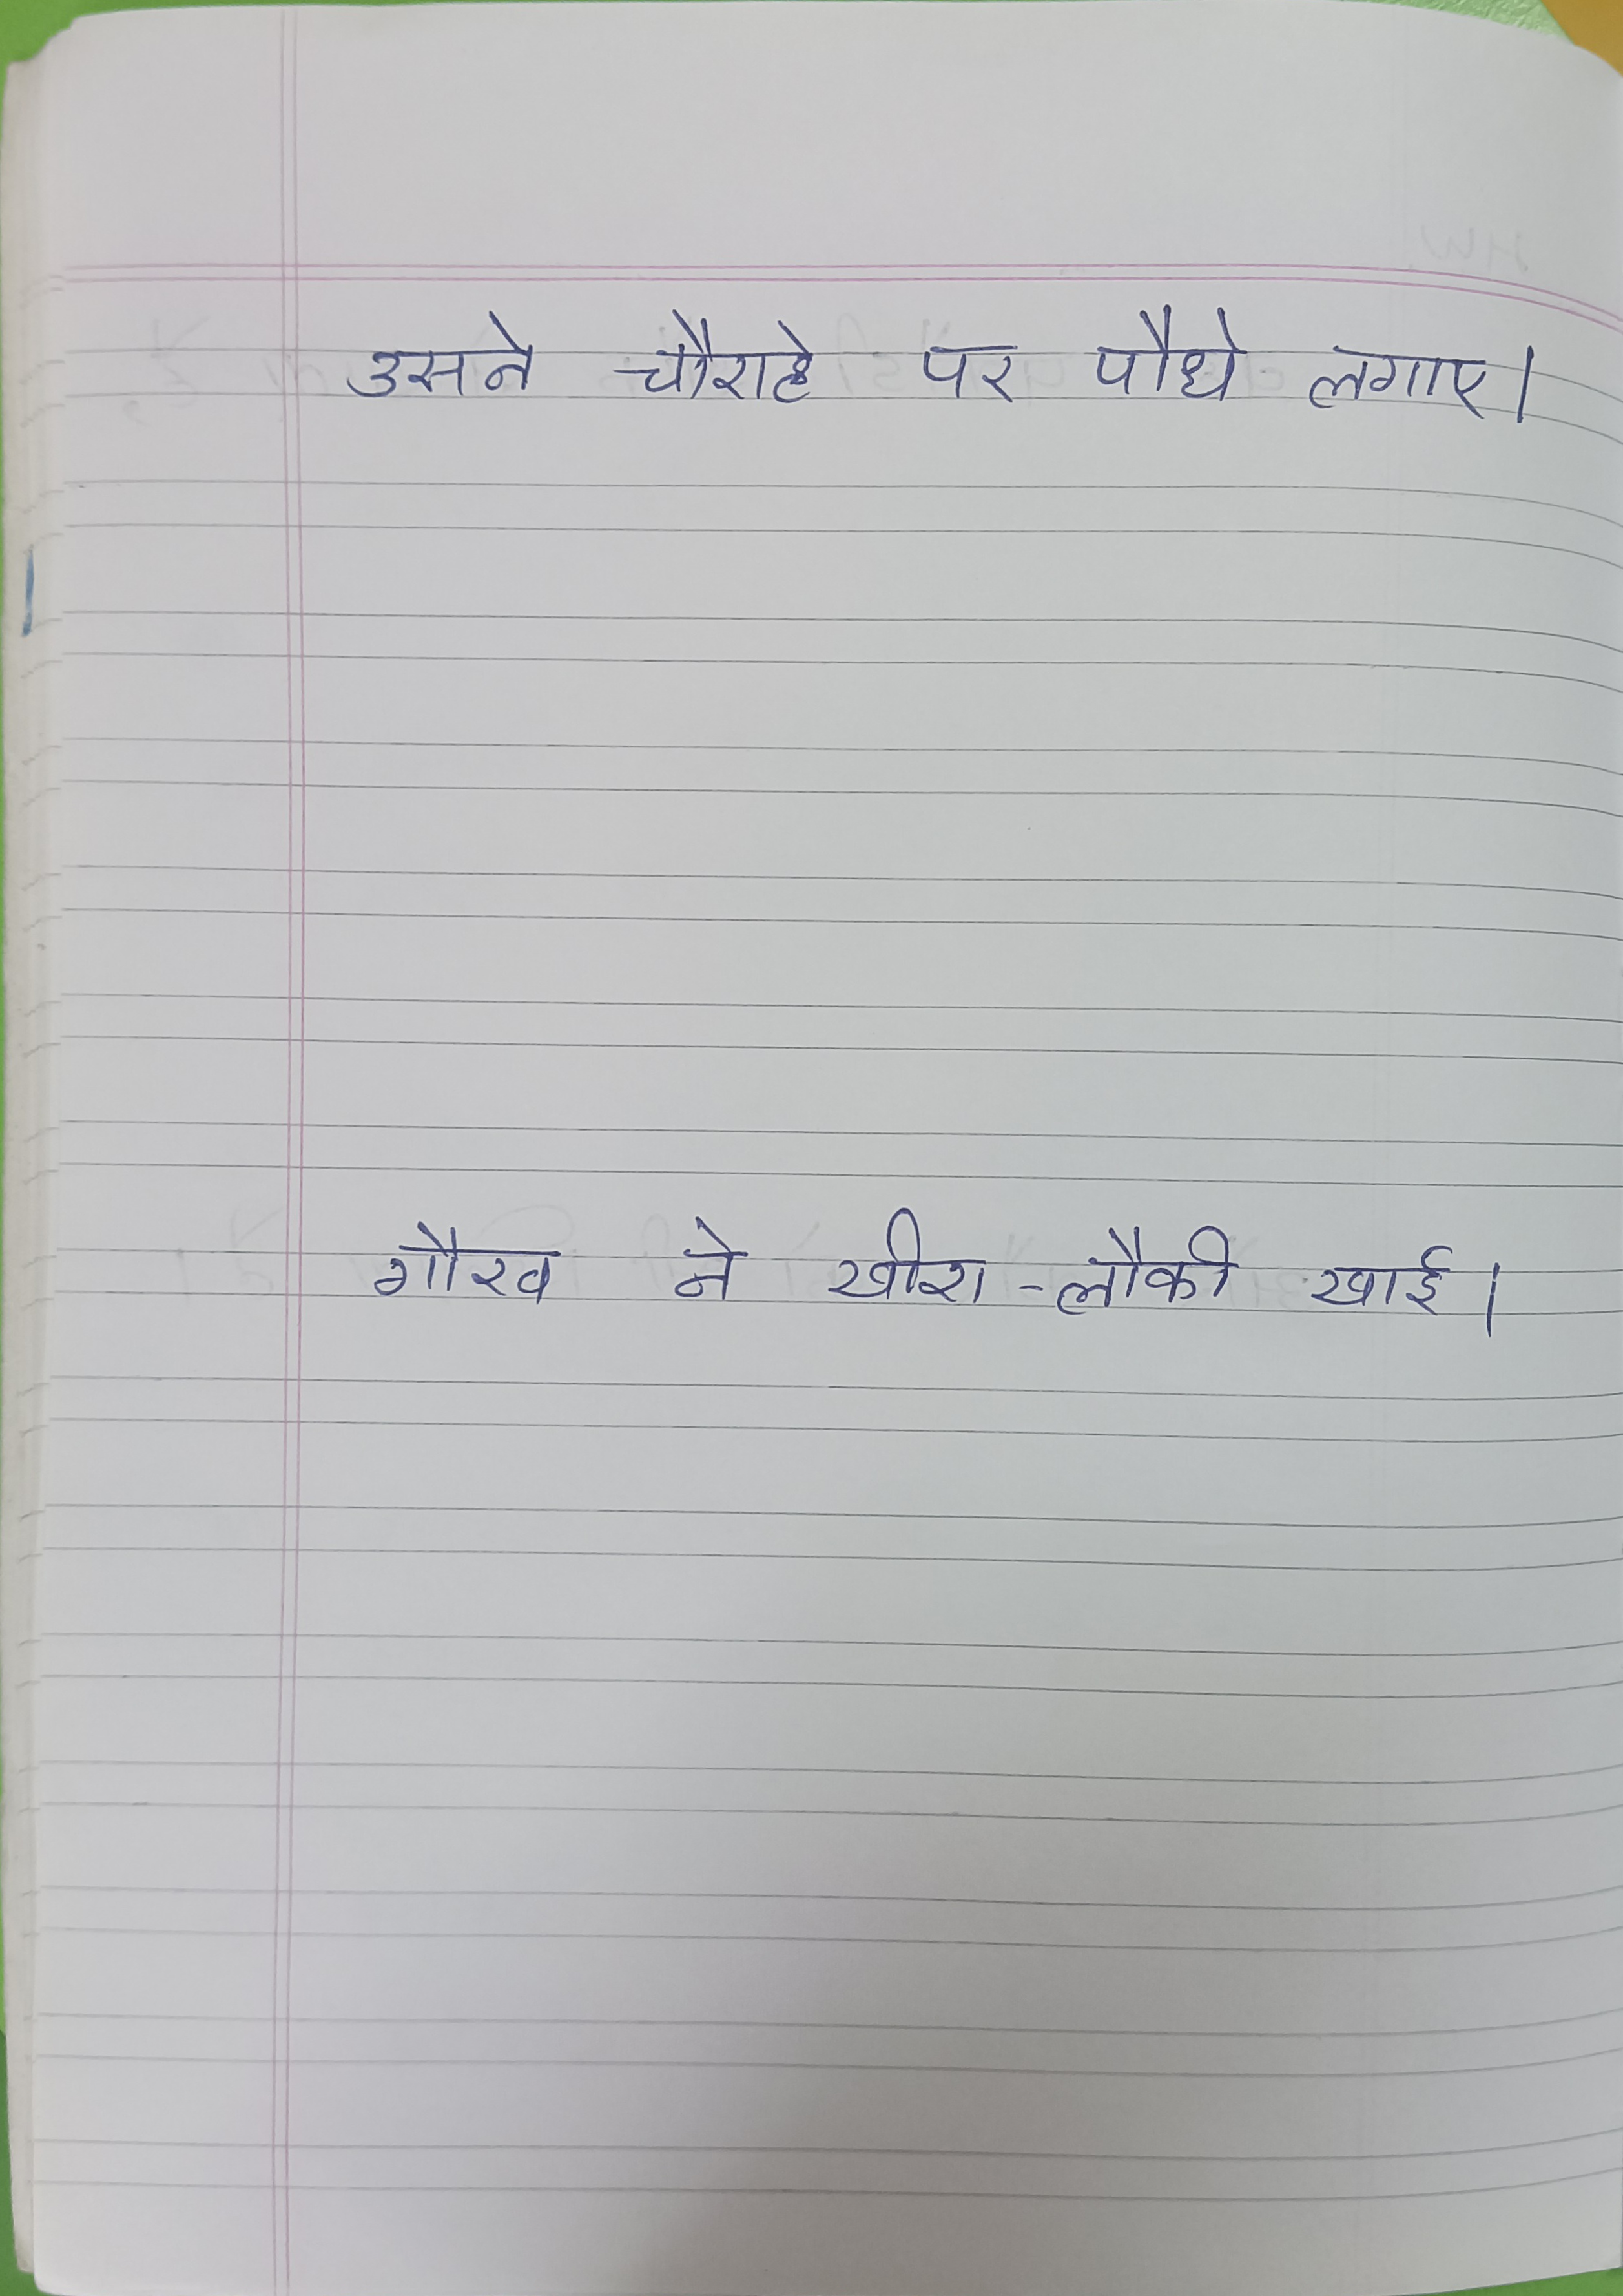 उसने चौराहे पर पौधे लगाए।
गौरव ने खीरा-लौकी खाई।